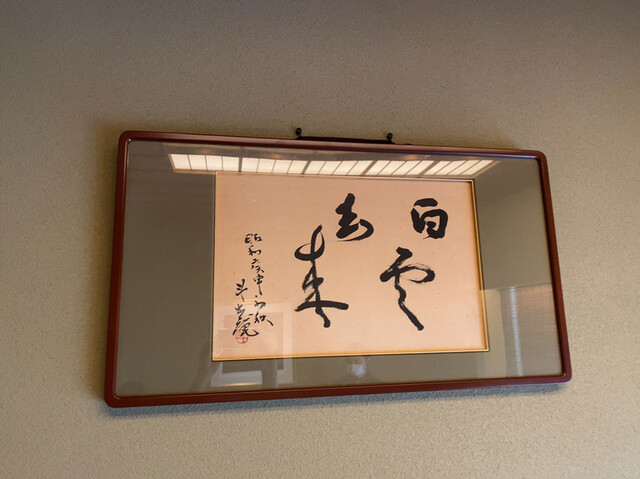 白雲
去来
昭和庚申初秋